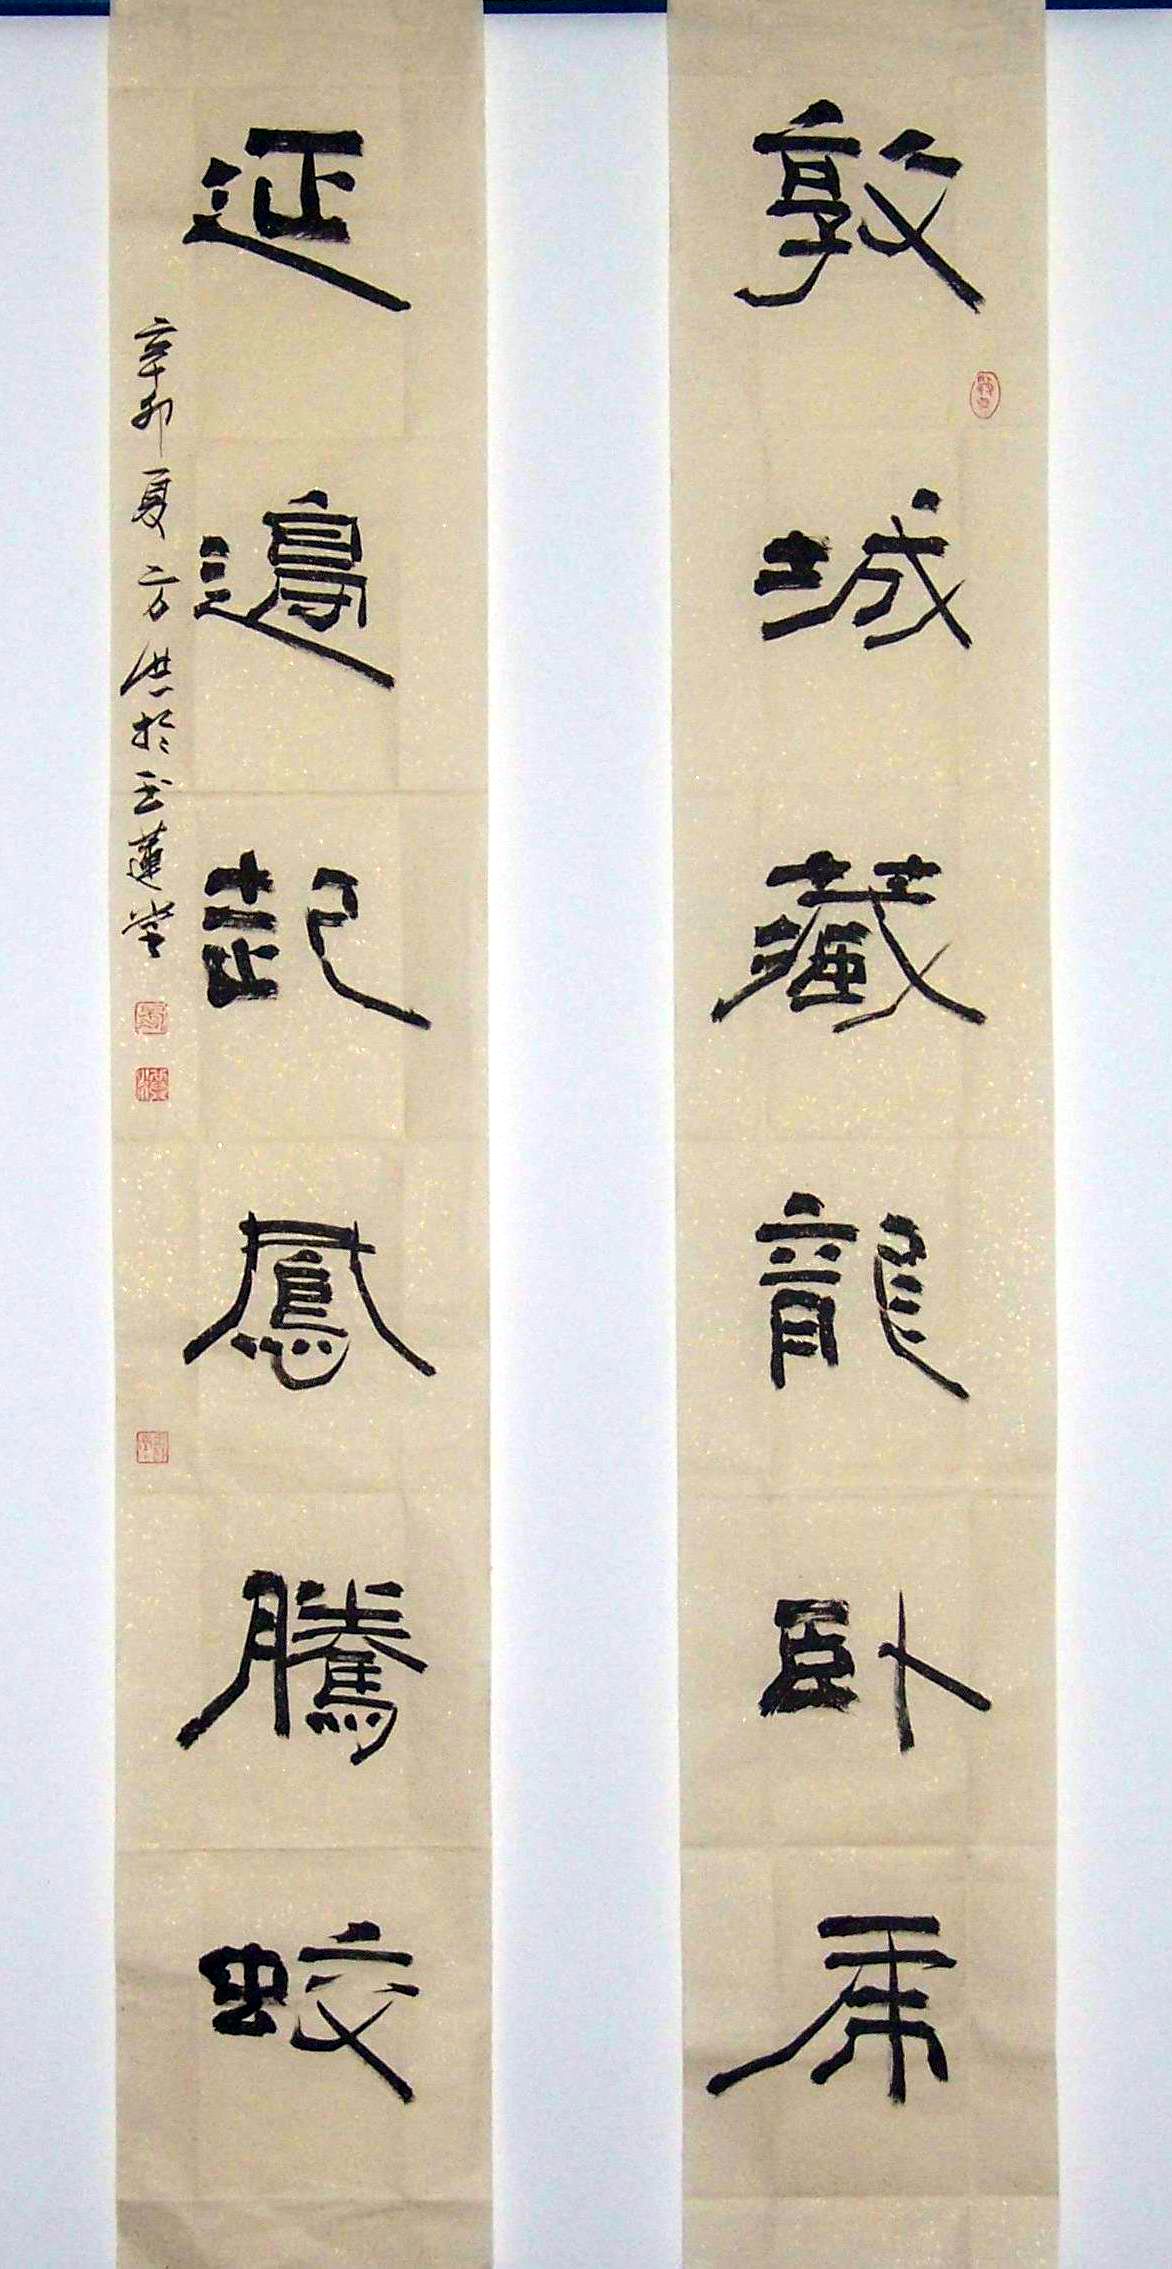 敦城藏龍卧虎
延邊起鳳騰蛟
辛卯夏方洪於玉蓮堂